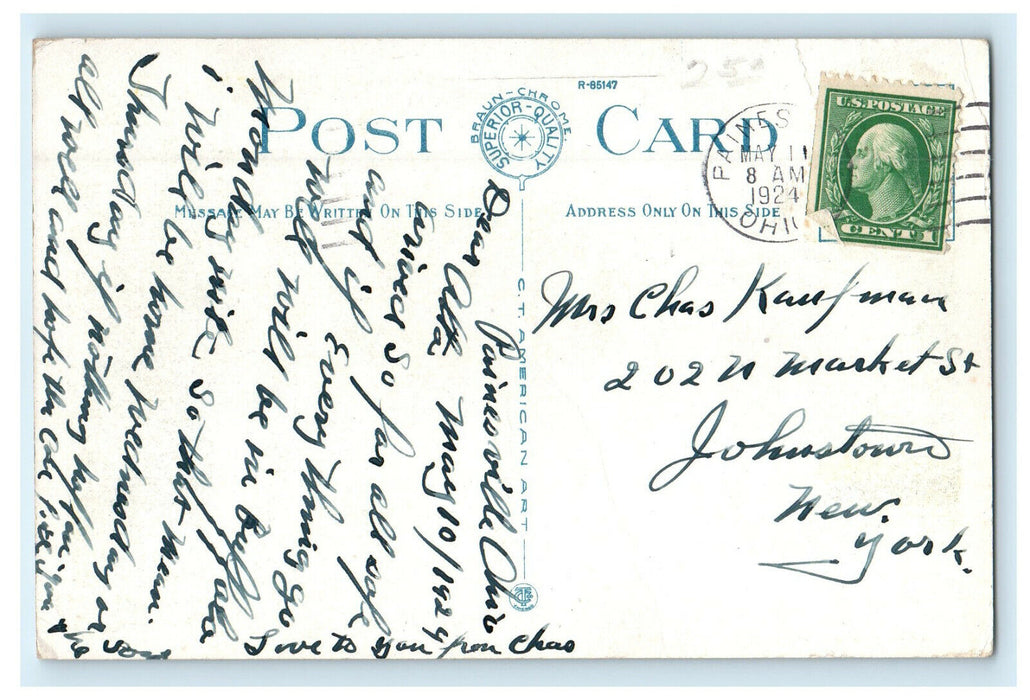 R-85147
POST CARD
BRAUN-CHROME
SUPERIOR-QUALITY
PAINES
MAY 11
8 AM
1924
OHIO
U.S. POSTAGE
CENT 1
MESSAGE MAY BE WRITTEN ON THIS SIDE
ADDRESS ONLY ON THIS SIDE
C.T. AMERICAN ART
Painesville Ohio
Dear May 10/1924
arrived So far all safe
and if Every thing go
well will be in Buffalo
Monday nite So that Mean
i will be home Wednesday or
Thursday if nothing hapen
all well and hope the are
Love to you from Chas
Mrs Chas Kaufman
202 N Market St
Johnstown
New.
York.